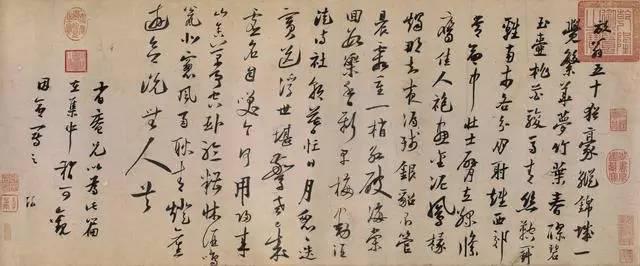 放翁五十猶豪縱錦城一
覺繁華夢竹葉春醪碧
玉壺桃花駿馬青絲鞚鬥
雞南市各分朋射雉西郊
常命中壯士臂立綠絛
鷹佳人袍畫金泥鳳椽
燭那知夜漏殘銀貂不管
晨霜重一梢紅破海棠
回數蕊香新早梅動酒
徒詩社朝暮忙日月匆匆迭
賓送浮世堪驚老已成
虛名自笑今何用歸來
山舍萬事空臥聽糟床酒鳴
甕北窗風雨耿青燈舊
遊欲說無人共
省庵兄以為此篇
在集中稍可觀
因命寫之 游